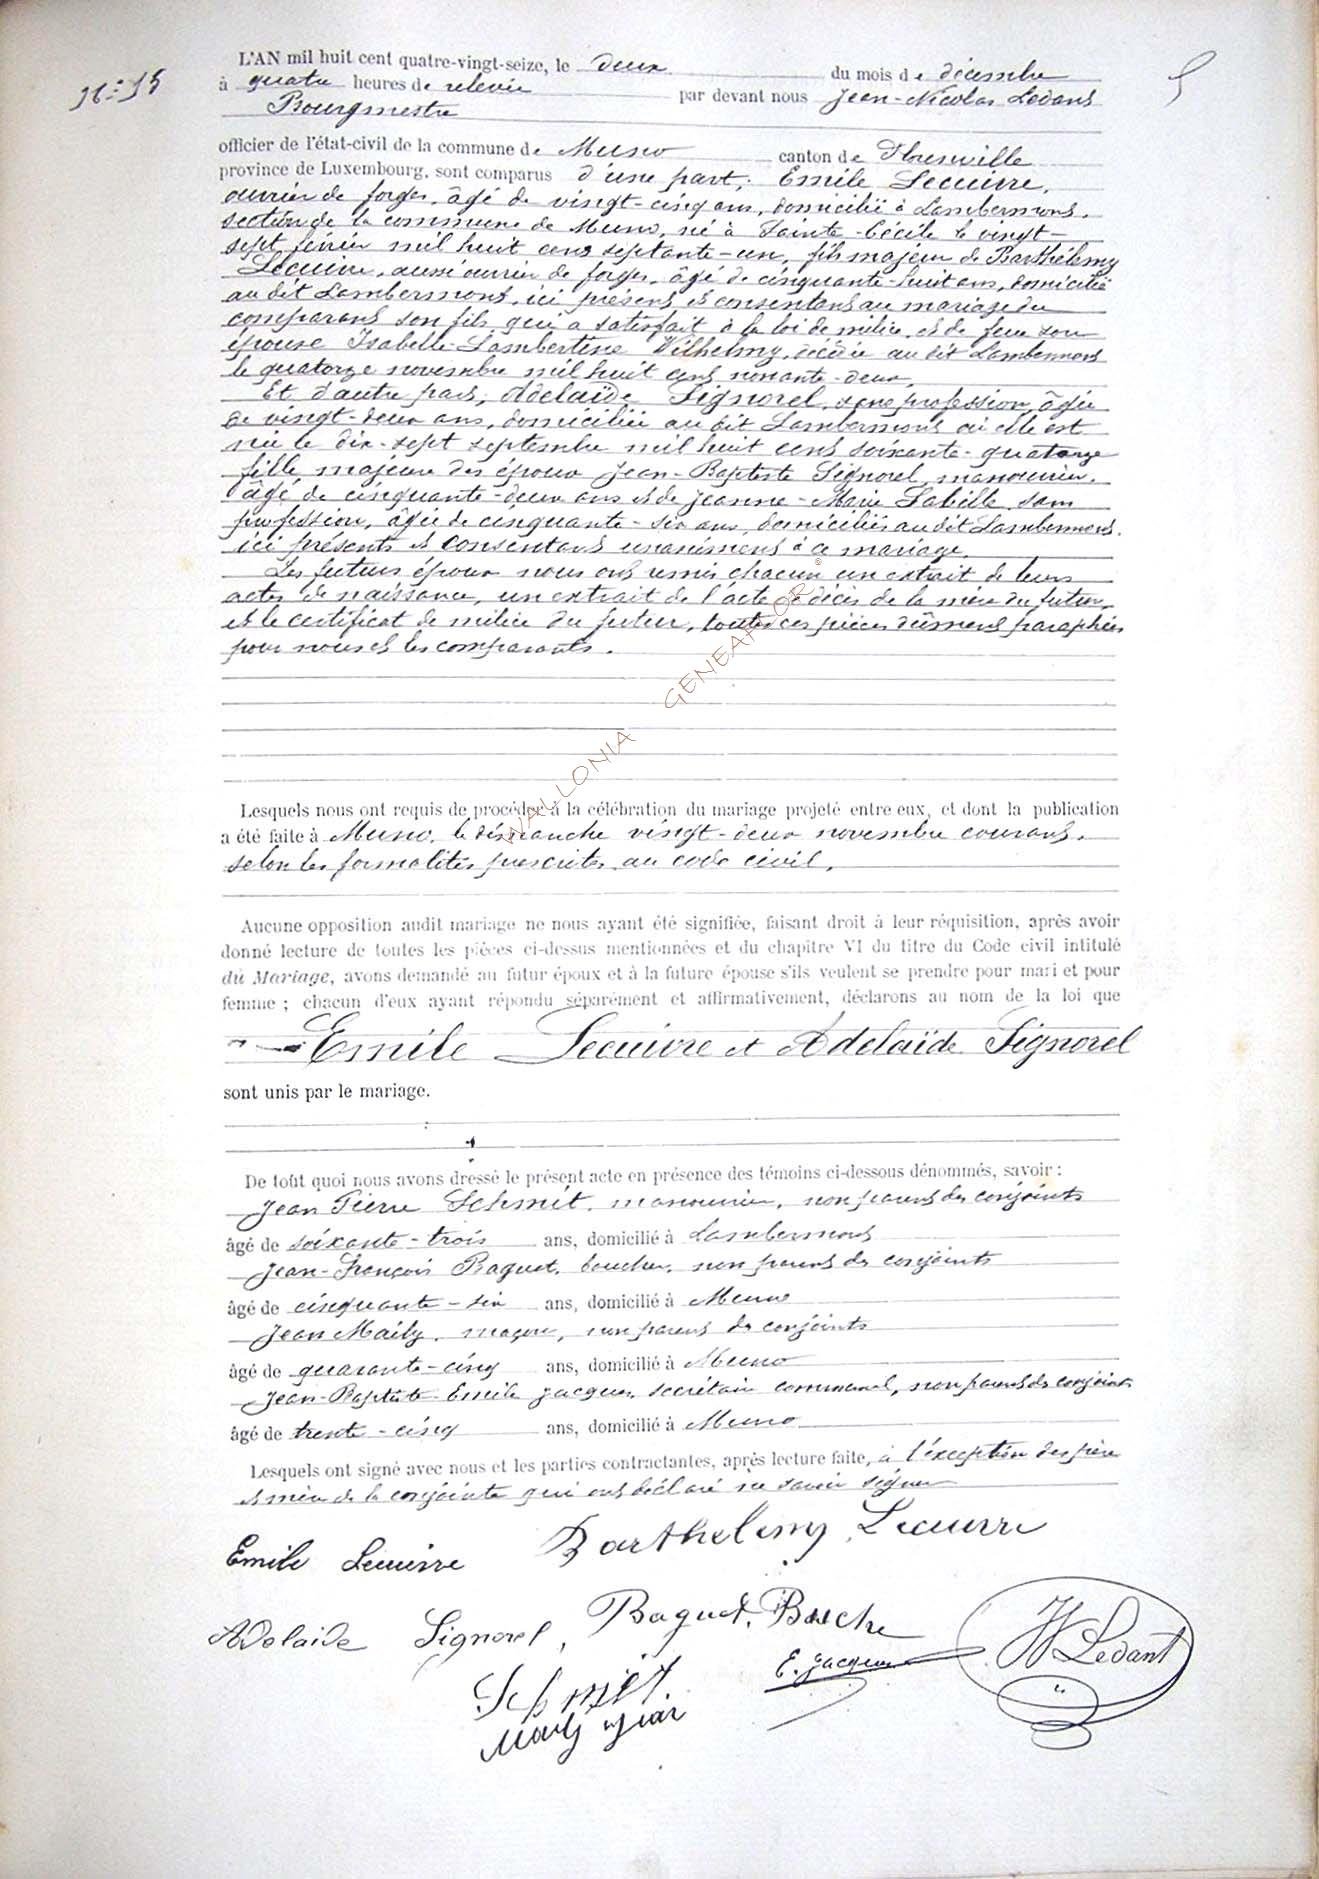 N° 15
L'AN mil huit cent quatre-vingt-seize, le deux du mois de décembre
à quatre heures de relevée par devant nous Jean-Nicolas Ledant
Bourgmestre
officier de l'état-civil de la commune de Muno canton de Florenville
province de Luxembourg, sont comparus d'une part, Emile Lecuivre,
ouvrier de forges, âgé de vingt-cinq ans, domicilié à Lambermont,
section de la commune de Muno, né à Sainte-Cécile le vingt-
sept février mil huit cent septante-un, fils majeur de Barthélemy
Lecuivre, aussi ouvrier de forges, âgé de cinquante-huit ans, domicilié
au dit Lambermont, ici présent et consentant au mariage du
comparant son fils qui a satisfait à la loi de milice, et de feue son
épouse Isabelle-Lambertine Wilhelmy, décédée au dit Lambermont
le quatorze novembre mil huit cent nonante-deux.
Et d'autre part, Adelaïde Signorel, sans profession, âgée
de vingt-deux ans, domiciliée au dit Lambermont où elle est
née le dix-sept septembre mil huit cent soixante-quatorze
fille majeure des époux Jean-Baptiste Signorel, manouvrier,
âgé de cinquante-deux ans et de Jeanne-Marie Labille sans
profession, âgée de cinquante-six ans, domiciliés au dit Lambermont,
ici présents et consentant unanimement à ce mariage.
Les futurs époux nous ont remis chacun un extrait de leurs
actes de naissance, un extrait de l'acte de décès de la mère du futur,
et le certificat de milice du futur, toutes ces pièces dûment paraphées
par nous et les comparants.
WALLONIA GENEAFLOR ©
Lesquels nous ont requis de procéder à la célébration du mariage projeté entre eux, et dont la publication
a été faite à Muno, le dimanche vingt-deux novembre courant,
selon les formalités prescrites au code civil.
Aucune opposition audit mariage ne nous ayant été signifiée, faisant droit à leur réquisition, après avoir
donné lecture de toutes les pièces ci-dessus mentionnées et du chapitre VI du titre du Code civil intitulé
du Mariage, avons demandé au futur époux et à la future épouse s'ils veulent se prendre pour mari et pour
femme ; chacun d'eux ayant répondu séparément et affirmativement, déclarons au nom de la loi que
Emile Lecuivre et Adelaïde Signorel
sont unis par le mariage.
De tout quoi nous avons dressé le présent acte en présence des témoins ci-dessous dénommés, savoir :
Jean Pierre Schmit, manouvrier, non parent des conjoints
âgé de soixante-trois ans, domicilié à Lambermont
Jean-François Baquet, boucher, non parent des conjoints
âgé de cinquante-six ans, domicilié à Muno
Jean Maily, maçon, non parent des conjoints
âgé de quarante-cinq ans, domicilié à Muno
Jean-Baptiste Emile Jacques, secrétaire communal, non parent des conjoints
âgé de trente-cinq ans, domicilié à Muno
Lesquels ont signé avec nous et les parties contractantes, après lecture faite, à l'exception des père
et mère de la conjointe qui ont déclaré ne savoir signer
Emile Lecuivre Barthelemy Lecuivre
Adelaide Signorel, Baquet, Bouche
E. Jacques JN Ledant
Schmit
Maily Jean